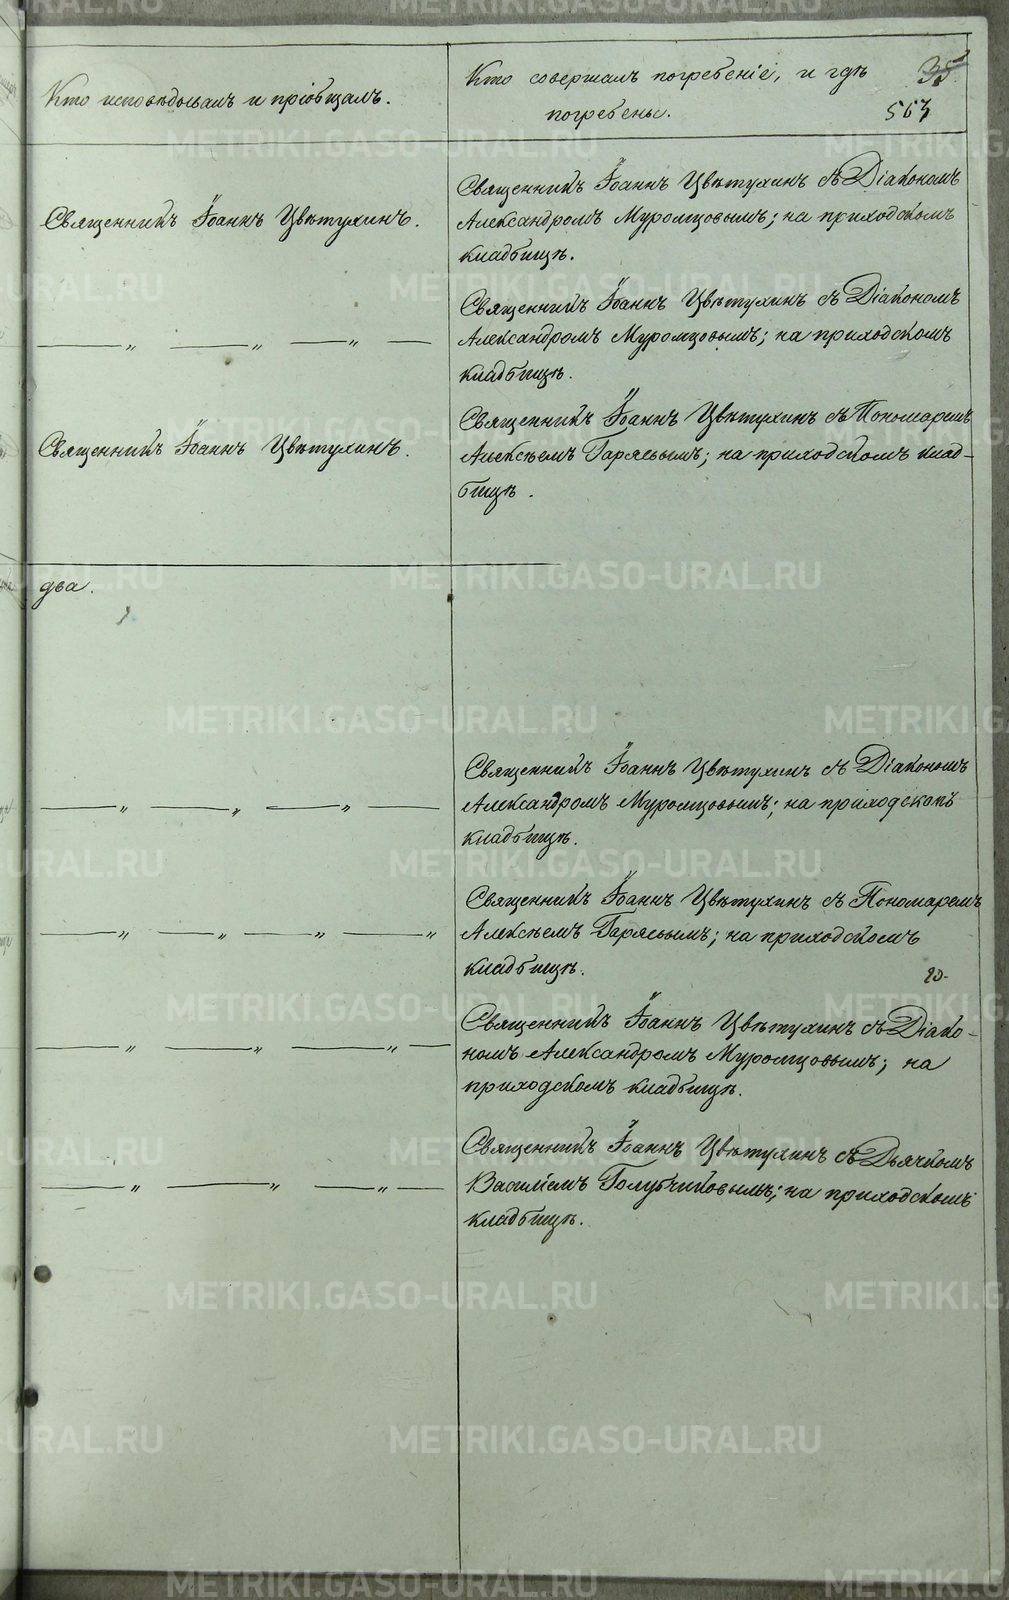 Кто исповѣдовалъ и пріобщалъ.
Кто совершалъ погребеніе, и гдѣ
погребены.
35
563
Священникъ Іоаннъ Цвѣтухинъ.
Священникъ Іоаннъ Цвѣтухинъ съ Діакономъ
Александромъ Муромцовымъ; на приходскомъ
кладбищѣ.
— „ — „ — „ —
Священникъ Іоаннъ Цвѣтухинъ съ Діакономъ
Александромъ Муромцовымъ; на приходскомъ
кладбищѣ.
Священникъ Іоаннъ Цвѣтухинъ.
Священникъ Іоаннъ Цвѣтухинъ съ Пономаремъ
Алексѣемъ Гаряевымъ; на приходскомъ клад-
бищѣ.
два.
— „ — „ — „ —
Священникъ Іоаннъ Цвѣтухинъ съ Діакономъ
Александромъ Муромцовымъ; на приходскомъ
кладбищѣ.
— „ — „ — „ — „
Священникъ Іоаннъ Цвѣтухинъ съ Пономаремъ
Алексѣемъ Гаряевымъ; на приходскомъ
кладбищѣ.
— „ — „ — „ —
Священникъ Іоаннъ Цвѣтухинъ съ Діако-
номъ Александромъ Муромцовымъ; на
приходскомъ кладбищѣ.
— „ — „ — „ —
Священникъ Іоаннъ Цвѣтухинъ съ Дьячкомъ
Василіемъ Голубчиковымъ; на приходскомъ
кладбищѣ.
METRIKI.GASO-URAL.RU